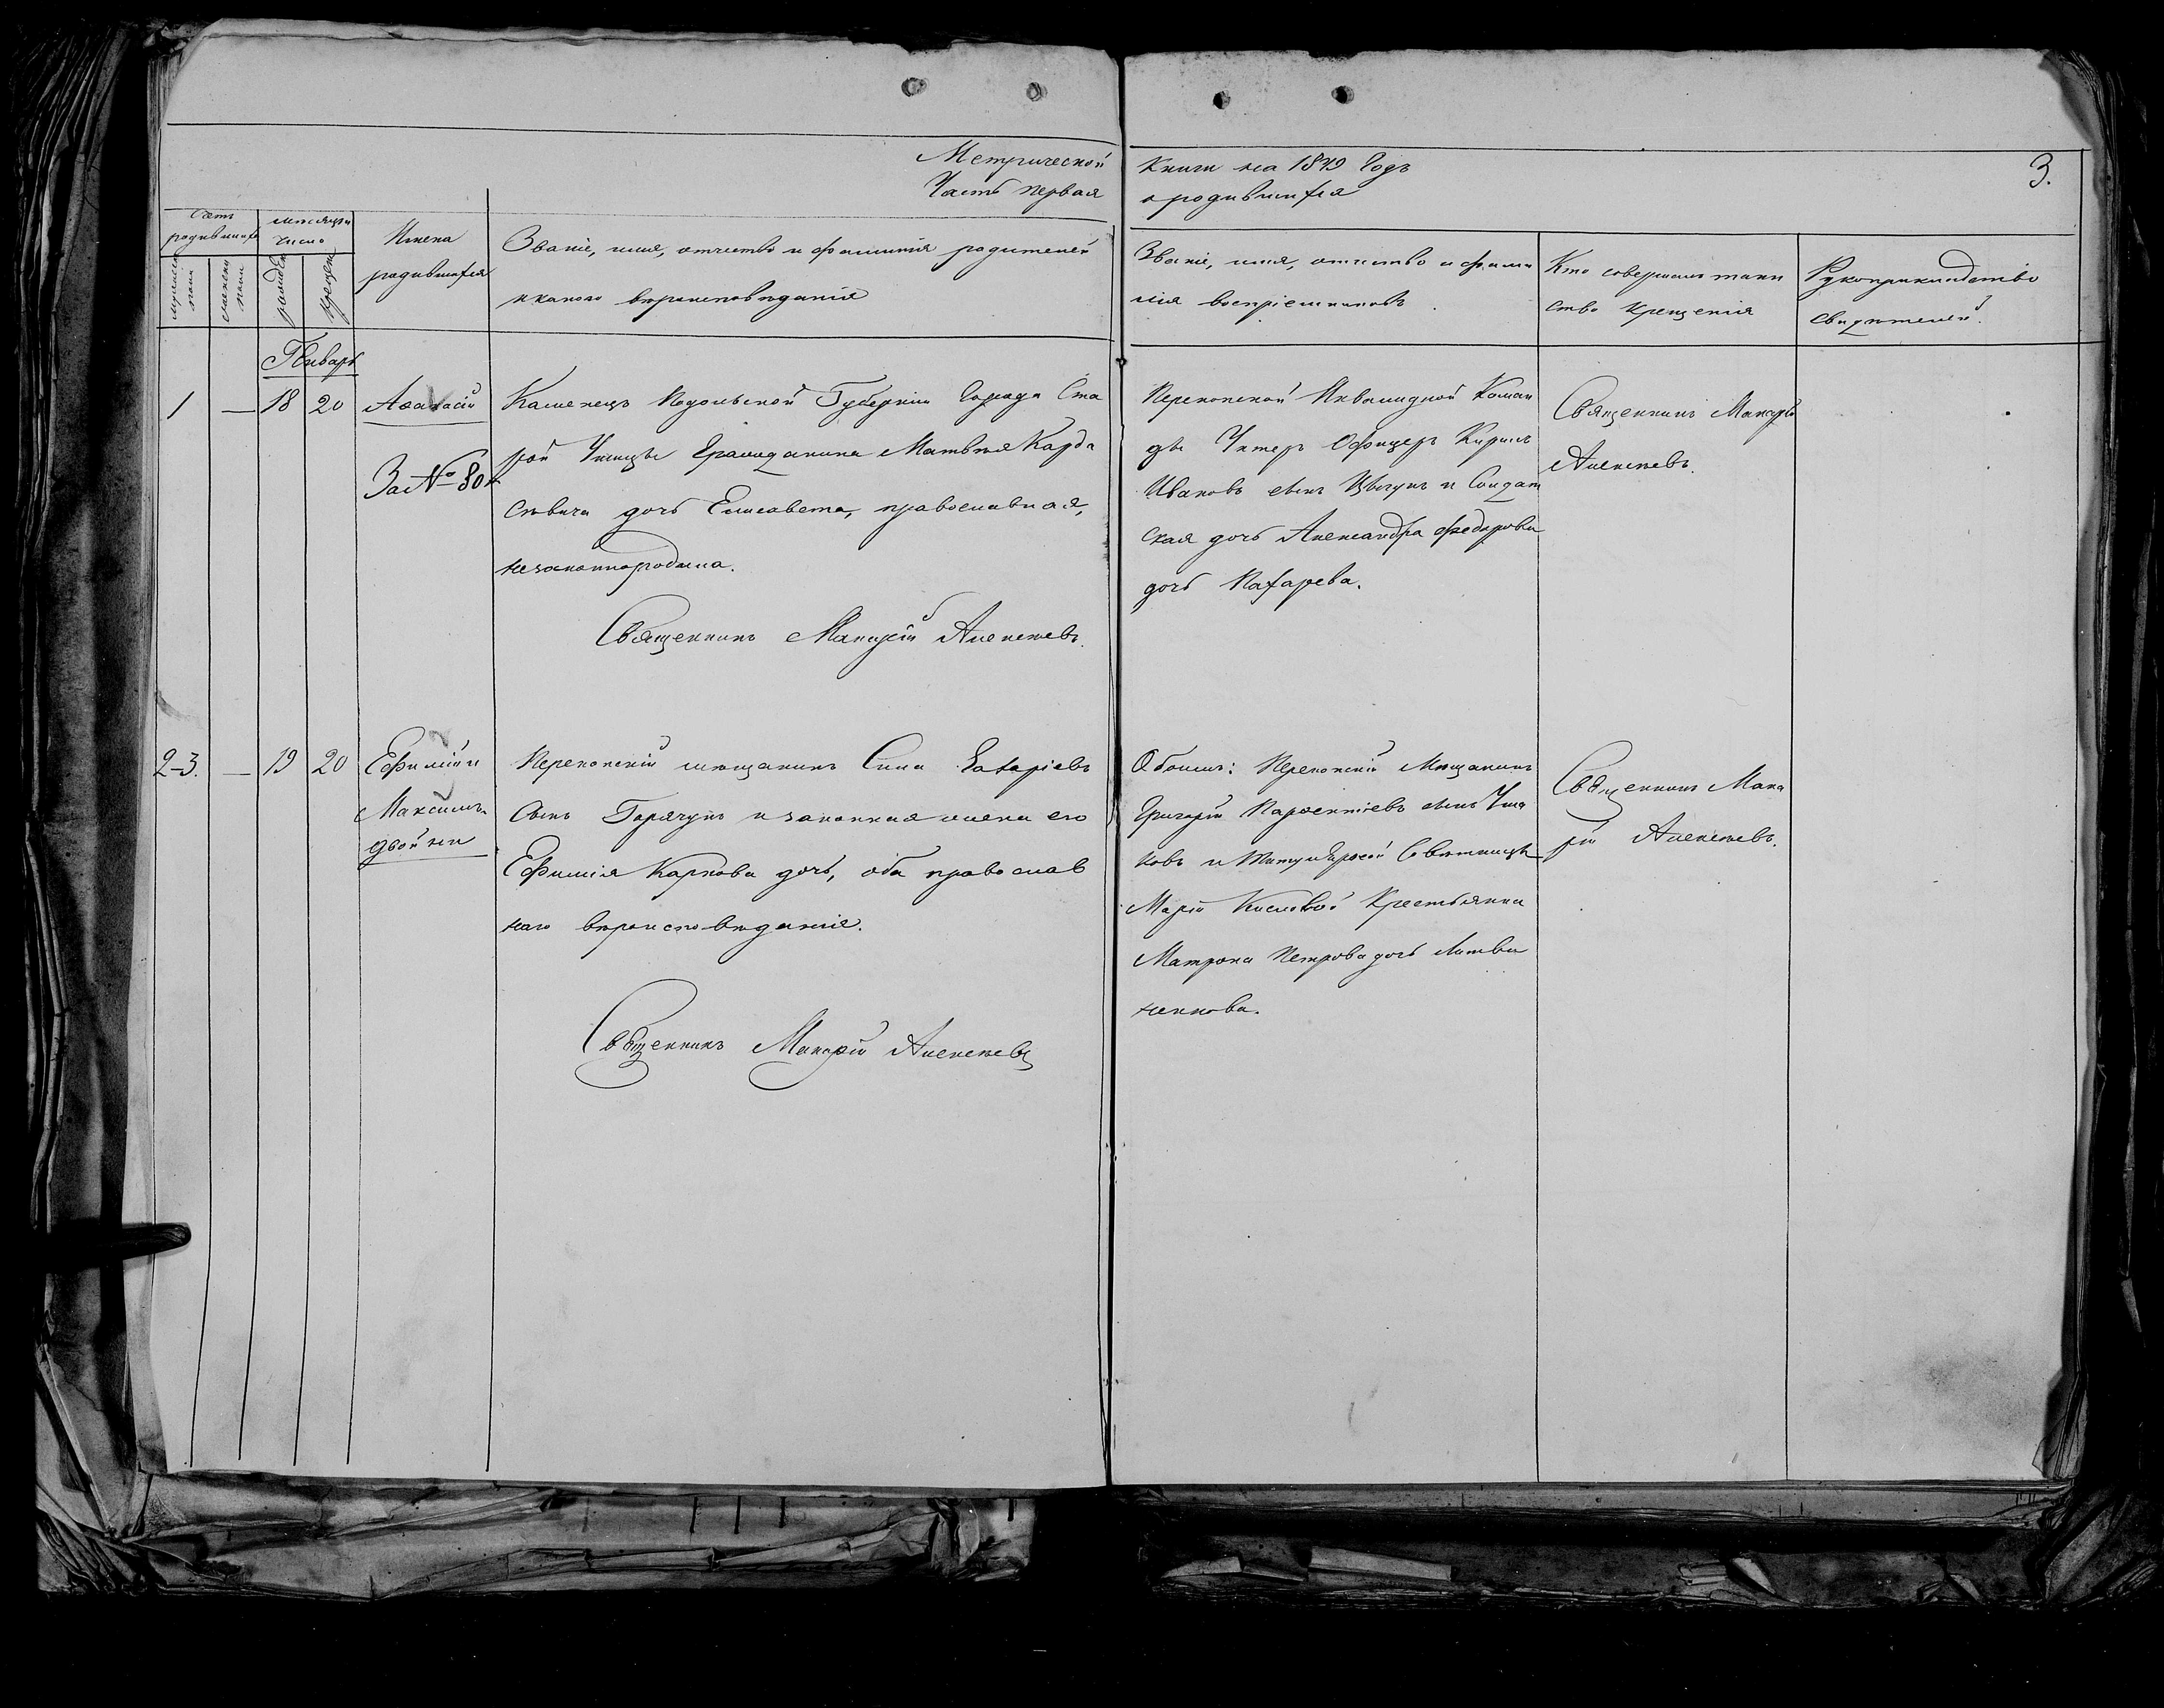 Метрической
Часть первая
книги на 1849 Годъ
о родившихся
3.
Счетъ родившихся
мужеска пола
женска пола
мѣсяцъ и число
рожденія
крещен
Имена
родившихся
Званіе, имя, отчество и фамилія родителей
и какого вѣроисповѣданія
Званіе, имя, отчество и фами
лія воспріемниковъ
Кто совершалъ таин
ство крещенія
Рукоприкладство
свидѣтелей
Генварь
1 — 18 20
Аѳанасій
За № 80
Каменецъ Подольской Губерніи Города Ста
рой Ушицы Гражданина Матвѣя Карда
севича дочь Елисавета, православная,
незаконнорождена.
Священникъ Макарій Алексѣевъ.
Перекопской Инвалидной Коман
ды Унтеръ Офицеръ Кирилъ
Ивановъ сынъ Цыгунъ и Солдат
ская дочь Александра Федорова
дочь Пахарева.
Священникъ Макарій
Алексѣевъ.
2-3. — 19 20
Ефимій и
Максимъ
двойни
Перекопскій мѣщанинъ Сила Захаріевъ
сынъ Горячунъ и законная жена его
Ефимія Карпова дочь, оба православ
наго вѣроисповѣданія.
Священникъ Макарій Алексѣевъ
Обоимъ: Перекопскій Мѣщанинъ
Григорій Парѳентіевъ сынъ Уша
ковъ и Титулярной Совѣтницы
Маріи Кисловой Крестьянка
Матрона Петрова дочь Литви
ненкова.
Священникъ Мака
рій Алексѣевъ.